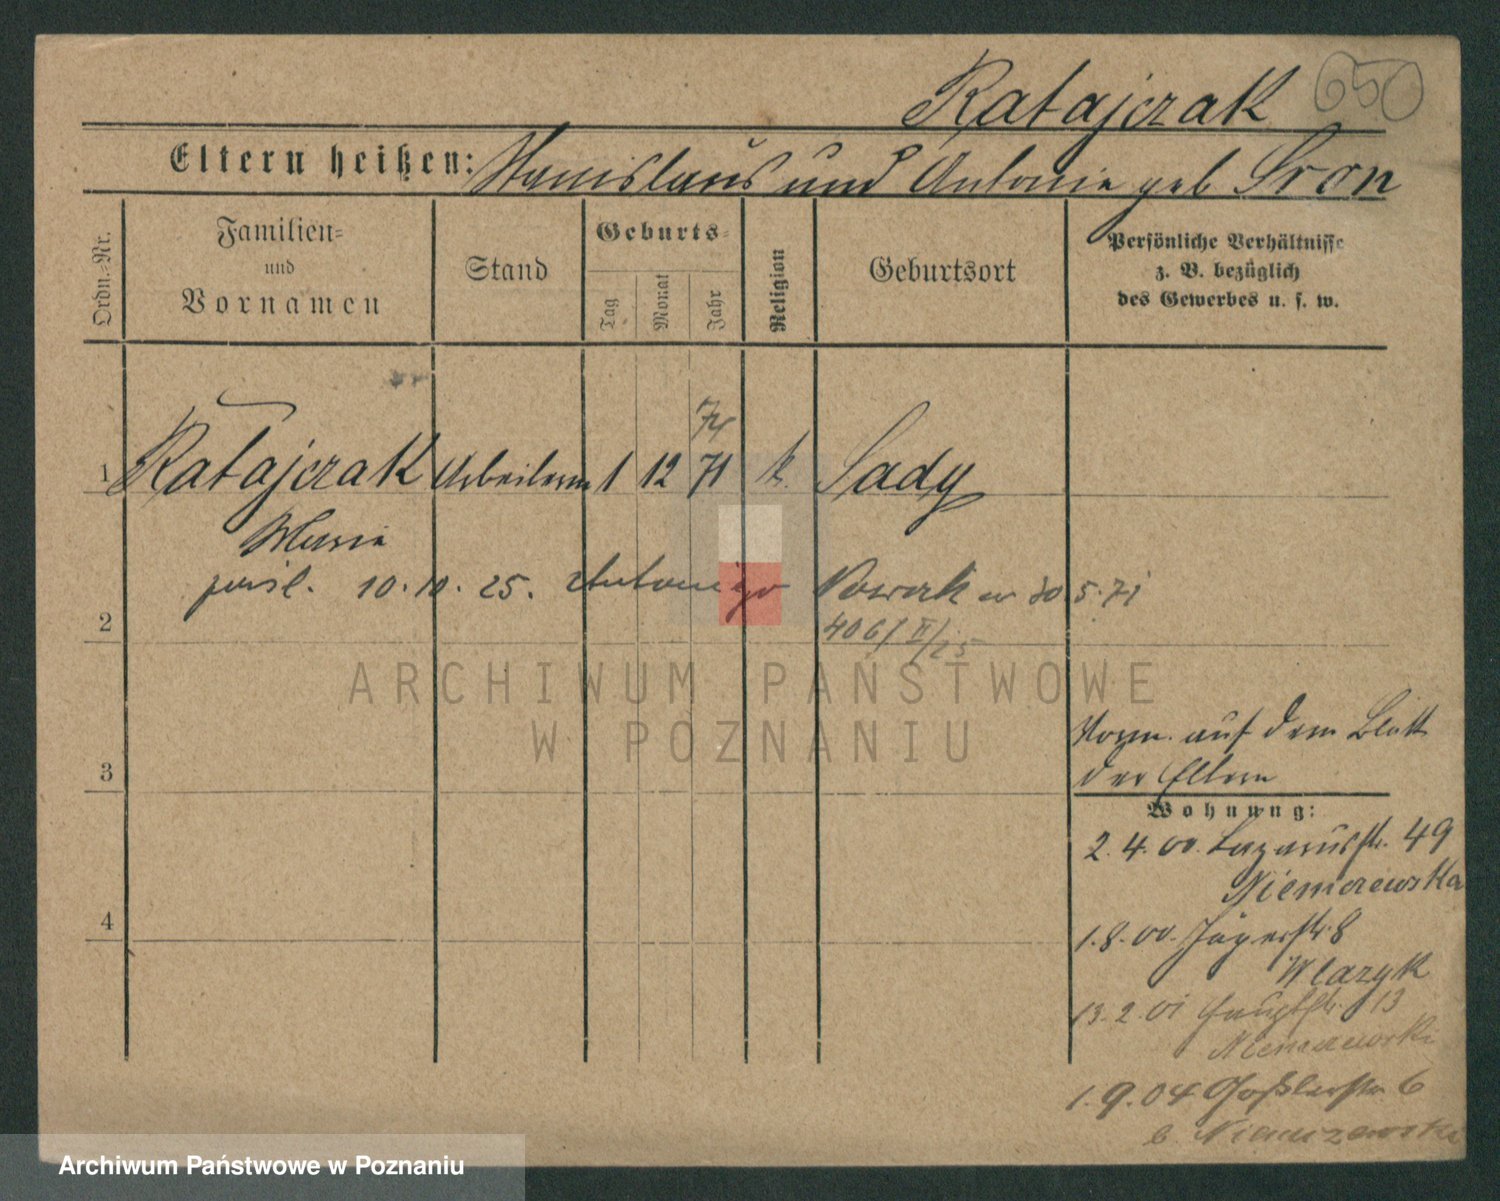 Ratajczak 650
Eltern heißen: Stanislaus und Antonie geb Sron
Ordn.-Nr.
Familien-
und
Vornamen
Stand
Geburts-
Tag
Monat
Jahr
Religion
Geburtsort
Persönliche Verhältnisse
z. B. bezüglich
des Gewerbes u. s. w.
74
1 Ratajczak Arbeiterin 1 12 71 k. Sady
Maria
posl. 10.10.25. Antoniego Nowak ur 30.5.71
2 406/II/25
ARCHIWUM PAŃSTWOWE
W POZNANIU
Vorm. auf dem Blatt
3 der Eltern
Wohnung:
2.4.00. Lazarusstr. 49
Niemczewska
4 1.8.00. Jägerstr. 8
Wlazyk
13.2.01 Hauptstr. 13
Niemczewski
1.9.04 Goßlerstr 6
b. Niemczewska
Archiwum Państwowe w Poznaniu